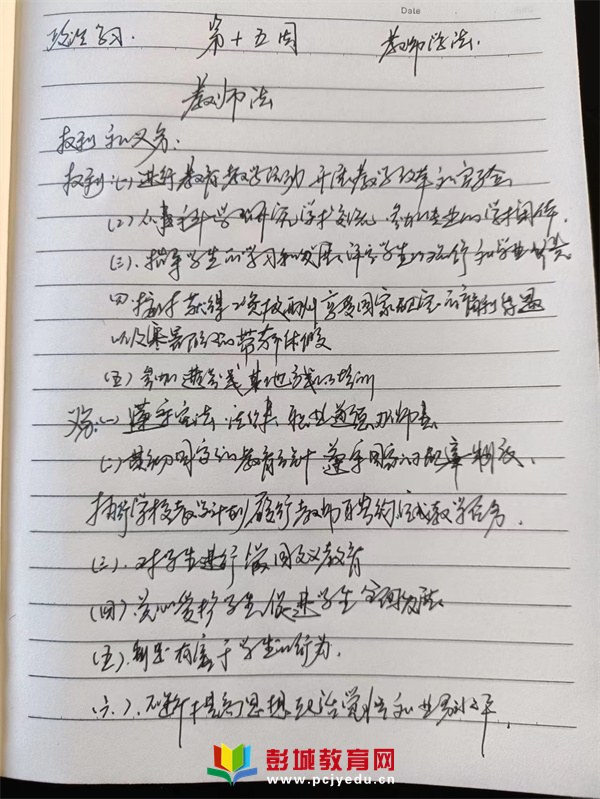 Date
政治学习. 第十五周 教师学法.
教师法
权利和义务:
权利(一)进行教育教学活动 开展教学改革和实验
(2)从事科学研究学术交流 参加专业的学术团体.
(三).指导学生的学习和发展 评定学生的品行和学业成绩.
四.按时获得工资报酬 享受国家规定的福利待遇
以及寒暑假的带薪休假
(五)参加进修或其他方式的培训
义务:(一)遵守宪法.法律.职业道德.为师表
(二)贯彻国家的教育方针 遵守国家的规章制度、
执行学校教学计划 履行教师聘约 完成教学任务.
(三).对学生进行爱国主义教育
(四).关心爱护学生 促进学生全面发展.
(五).制止有害于学生的行为.
(六).不断提高思想政治觉悟和业务水平.
彭城教育网
www.pcjyedu.cn